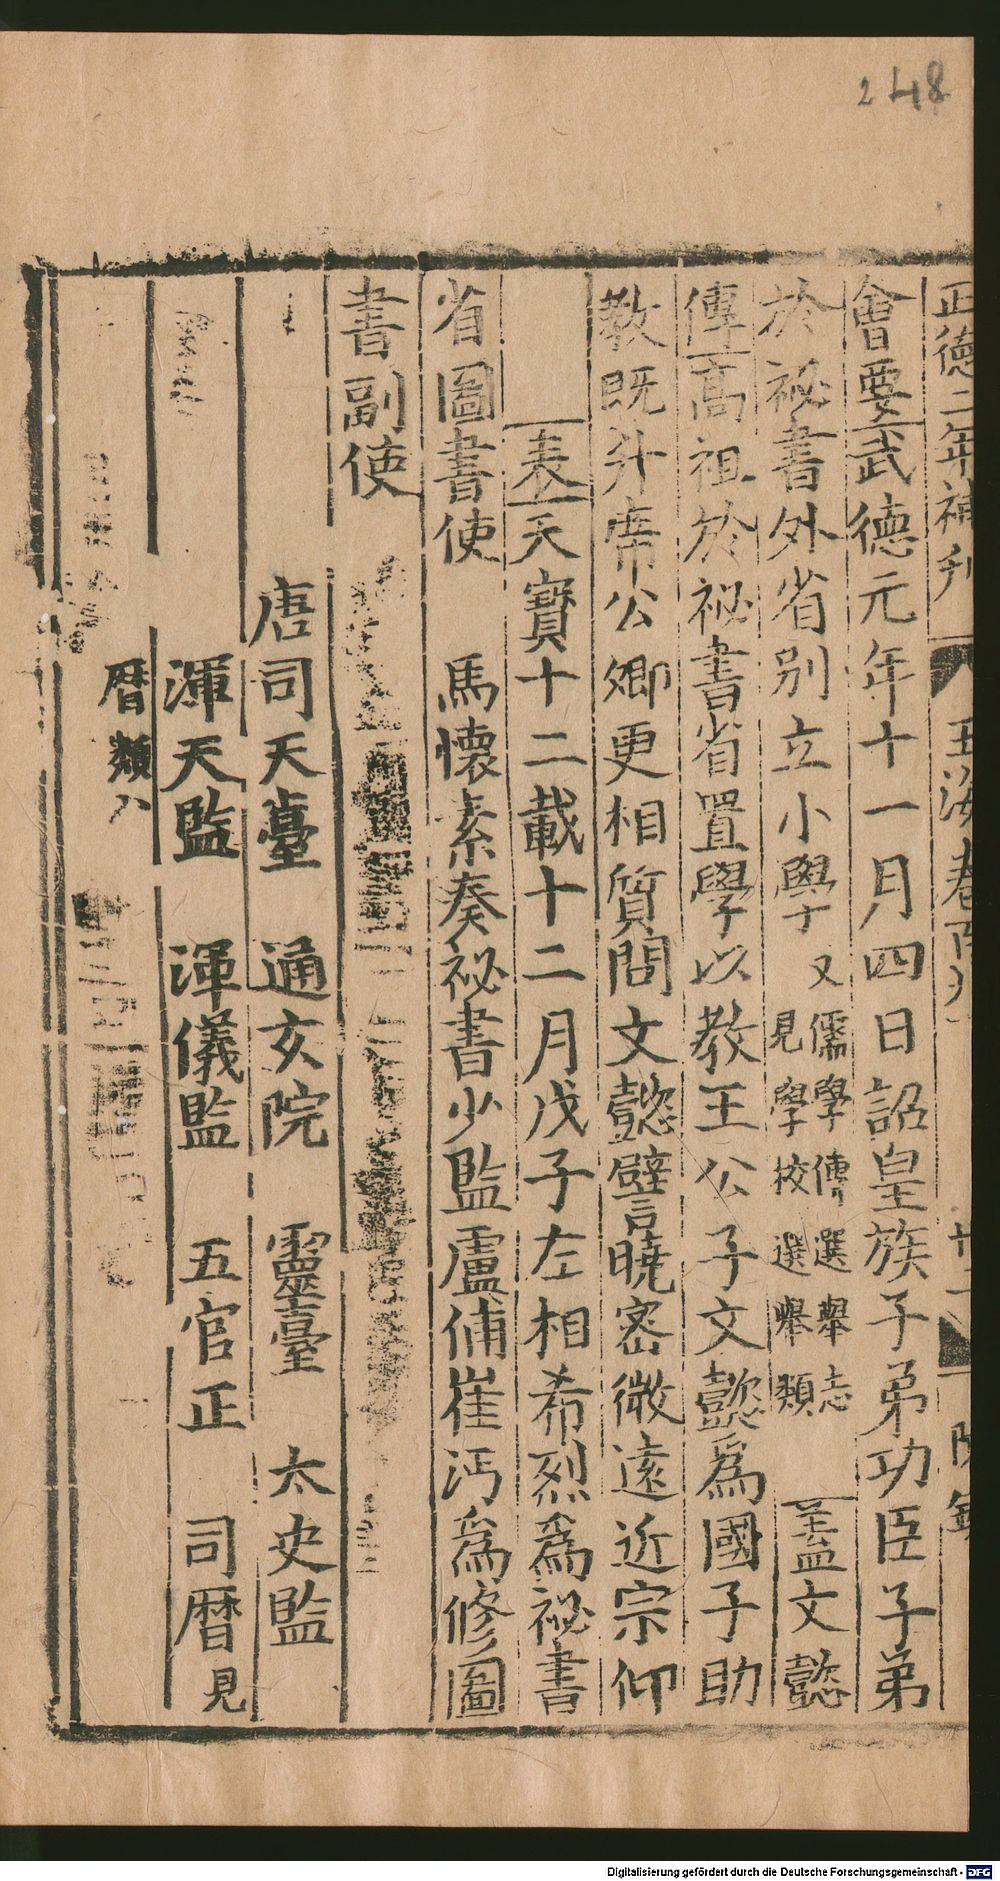 248
正德二年補刋 玉海卷百 廿一
會要武德元年十一月四日詔皇族子弟功臣子弟
於祕書外省別立小學又見學校選舉類儒學傳選舉志 蓋文懿
傳高祖於祕書省置學以教王公子文懿爲國子助
教既升席公卿更相質問文懿譬曉密微遠近宗仰
表天寶十二載十二月戊子左相希烈爲祕書
省圖書使 馬懷素奏祕書少監盧俌崔沔爲修圖
書副使
唐司天臺 通玄院 靈臺 太史監
渾天監 渾儀監 五官正 司曆見
曆類
Digitalisierung gefördert durch die Deutsche Forschungsgemeinschaft - DFG